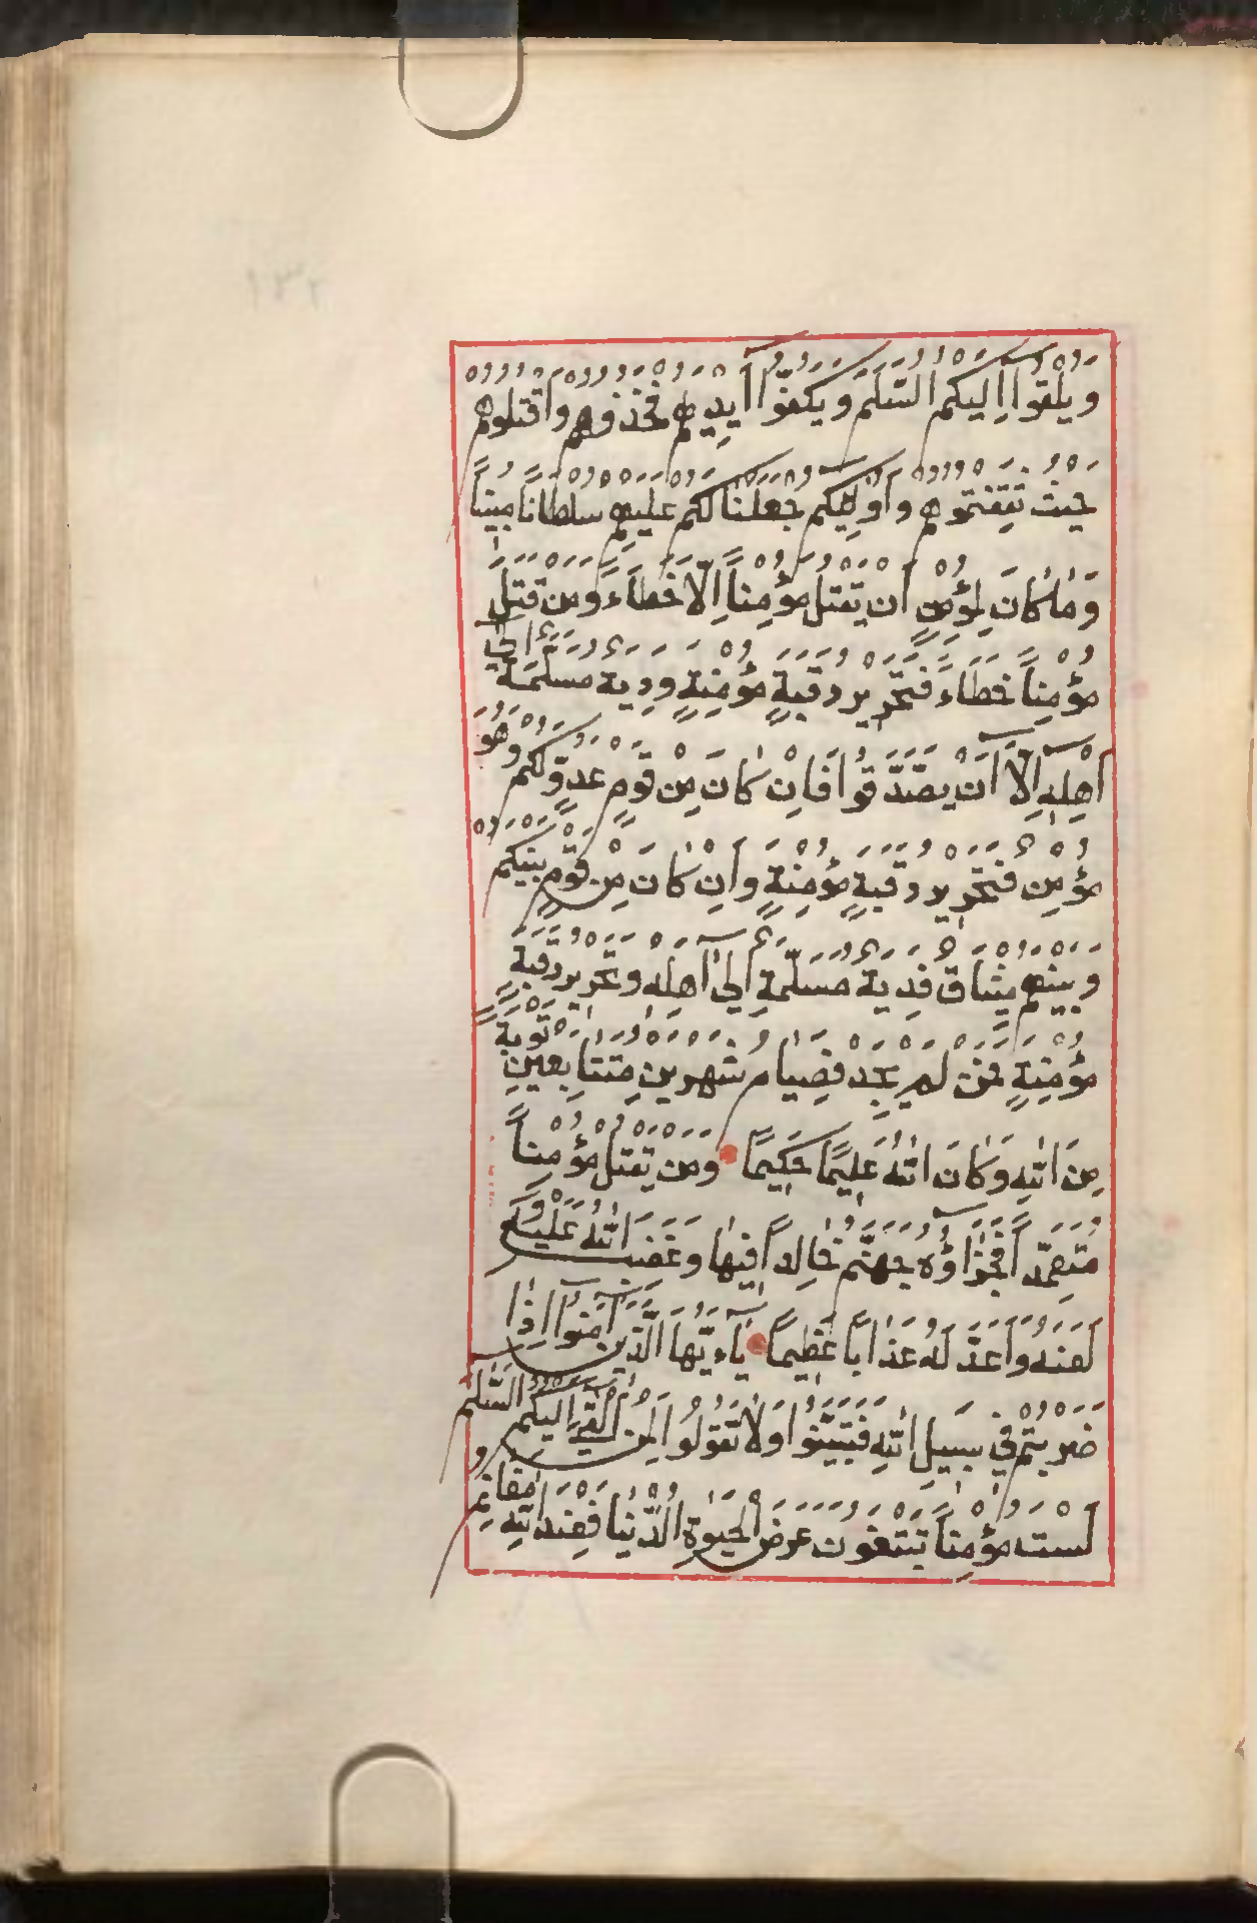 وَيُلْقُوا اِلَيْكُمُ السَّلَمَ وَيَكُفُّوا اَيْدِيَهُمْ فَخُذُوهُمْ وَاقْتُلُوهُمْ
حَيْثُ ثَقِفْتُمُوهُمْ وَاُولٰئِكُمْ جَعَلْنَا لَكُمْ عَلَيْهِمْ سُلْطَانًا مُبِينًا
وَمَا كَانَ لِمُؤْمِنٍ اَنْ يَقْتُلَ مُؤْمِنًا اِلَّا خَطَاءً وَمَنْ قَتَلَ
مُؤْمِنًا خَطَاءً فَتَحْرِيرُ رَقَبَةٍ مُؤْمِنَةٍ وَدِيَةٌ مُسَلَّمَةٌ اِلٰى
اَهْلِهِ اِلَّا اَنْ يَصَّدَّقُوا فَاِنْ كَانَ مِنْ قَوْمٍ عَدُوٍّ لَكُمْ وَهُوَ
مُؤْمِنٌ فَتَحْرِيرُ رَقَبَةٍ مُؤْمِنَةٍ وَاِنْ كَانَ مِنْ قَوْمٍ بَيْنَكُمْ
وَبَيْنَهُمْ مِيثَاقٌ فَدِيَةٌ مُسَلَّمَةٌ اِلٰى اَهْلِهِ وَتَحْرِيرُ رَقَبَةٍ
مُؤْمِنَةٍ فَمَنْ لَمْ يَجِدْ فَصِيَامُ شَهْرَيْنِ مُتَتَابِعَيْنِ تَوْبَةً
مِنَ اللّٰهِ وَكَانَ اللّٰهُ عَلِيمًا حَكِيمًا وَمَنْ يَقْتُلْ مُؤْمِنًا
مُتَعَمِّدًا فَجَزَاؤُهُ جَهَنَّمُ خَالِدًا فِيهَا وَغَضِبَ اللّٰهُ عَلَيْهِ وَ
لَعَنَهُ وَاَعَدَّ لَهُ عَذَابًا عَظِيمًا يَاءَيُّهَا الَّذِينَ اٰمَنُوا اِذَا
ضَرَبْتُمْ فِي سَبِيلِ اللّٰهِ فَتَبَيَّنُوا وَلَا تَقُولُوا لِمَنْ اَلْقٰى اِلَيْكُمُ السَّلَمَ
لَسْتَ مُؤْمِنًا تَبْتَغُونَ عَرَضَ الْحَيٰوةِ الدُّنْيَا فَعِنْدَ اللّٰهِ مَغَانِمُ